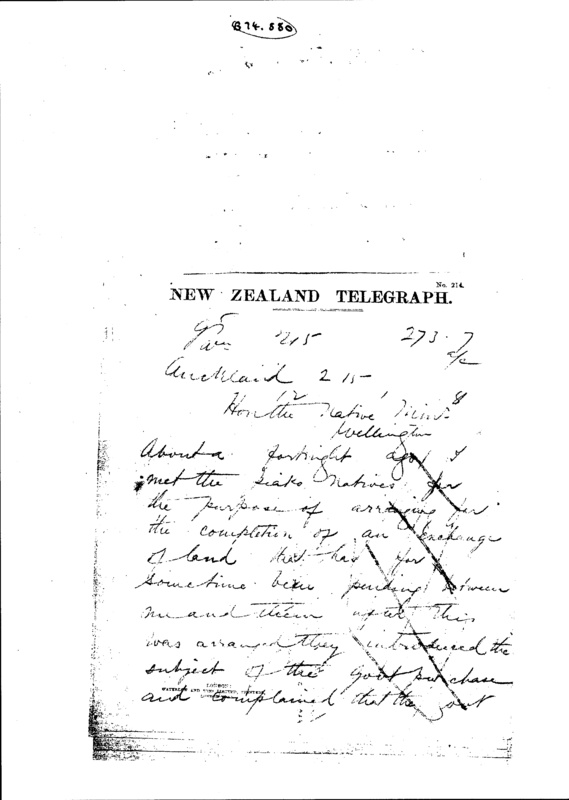 B74.550
No. 214.
NEW ZEALAND TELEGRAPH.
215 273. 7
Auckland 2 15
Hon the Native Minr
Wellington
About a fortnight ago I
met the Piako Natives for
the purpose of arranging for
the completion of an exchange
of land that has for
sometime been pending between
me and them after this
was arranged they introduced the
subject of the Govt purchase
LONDON:
WATERLOW AND SONS LIMITED, PRINTERS.
and complained that the